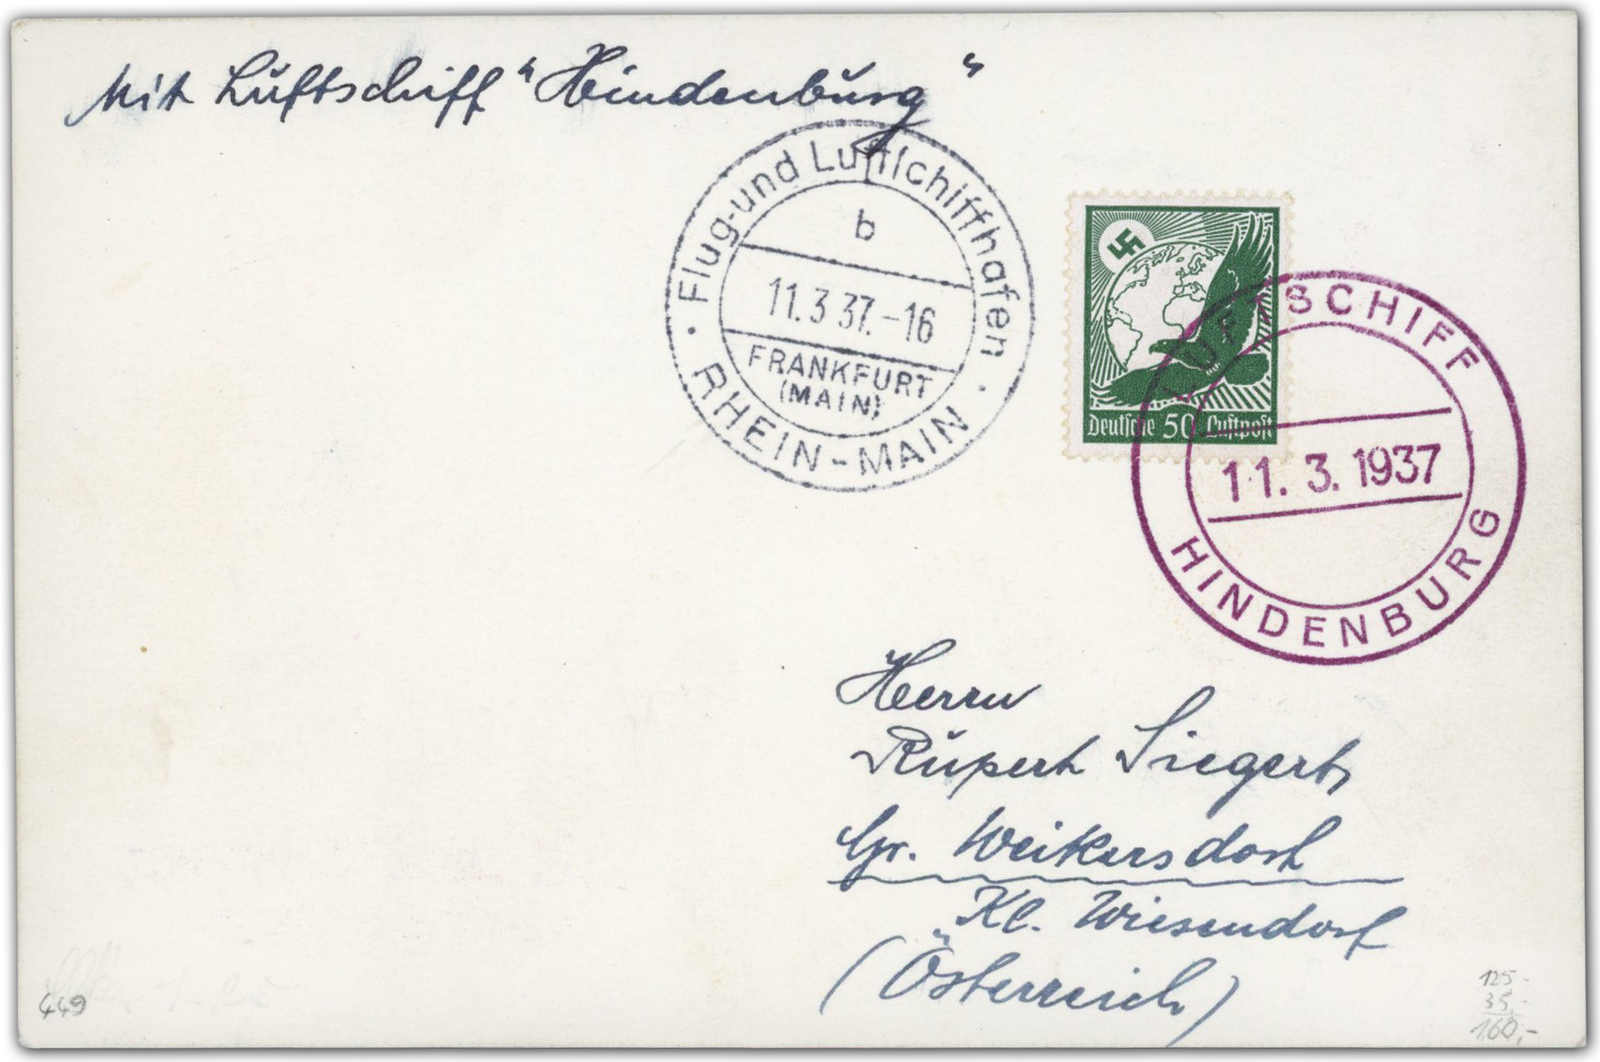 Mit Luftschiff "Hindenburg"
Flug-und Luftschiffhafen
b
11.3.37.-16
FRANKFURT
(MAIN)
RHEIN-MAIN
Deutsche 50 Luftpost
LUFTSCHIFF
11.3.1937
HINDENBURG
Herrn
Rupert Siegert,
Gr. Weikersdorf
Kl. Wiesendorf
(Österreich)
449
125-
35,-
160,-